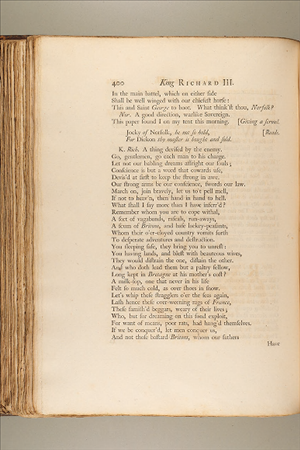 400 King RICHARD III.
In the main battel, which on either side
Shall be well winged with our chiefest horse:
This and Saint George to boot. What think'st thou, Norfolk?
Nor. A good direction, warlike Sovereign.
This paper found I on my tent this morning. [Giving a scrowl.
Jocky of Norfolk, be not so bold, [Reads.
For Dickon thy master is bought and sold.
K. Rich. A thing devised by the enemy.
Go, gentlemen, go each man to his charge.
Let not our babling dreams affright our souls;
Conscience is but a word that cowards use,
Devis'd at first to keep the strong in awe.
Our strong arms be our conscience, swords our law.
March on, join bravely, let us to't pell mell,
If not to heav'n, then hand in hand to hell.
What shall I say more than I have inferr'd?
Remember whom you are to cope withal,
A sort of vagabonds, rascals, run-aways,
A scum of Britons, and base lackey-peasants,
Whom their o'er-cloyed country vomits forth
To desperate adventures and destruction.
You sleeping safe, they bring you to unrest:
You having lands, and blest with beauteous wives,
They would distrain the one, distain the other.
And who doth lead them but a paltry fellow,
Long kept in Bretagne at his mother's cost?
A milk-sop, one that never in his life
Felt so much cold, as over shoes in snow.
Let's whip these stragglers o'er the seas again,
Lash hence these over-weening rags of France,
These famish'd beggars, weary of their lives;
Who, but for dreaming on this fond exploit,
For want of means, poor rats, had hang'd themselves.
If we be conquer'd, let men conquer us,
And not these bastard Britons, whom our fathers
Have